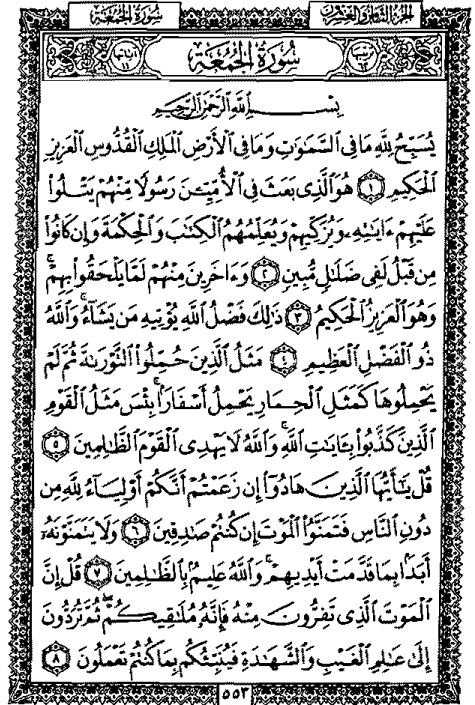 سُورَةُ الجُمُعَةِ
الجزء الثامن والعشرون
سُورَةُ الجُمُعَةِ
بِسْمِ اللَّهِ الرَّحْمَٰنِ الرَّحِيمِ
يُسَبِّحُ لِلَّهِ مَا فِي السَّمَٰوَٰتِ وَمَا فِي الْأَرْضِ الْمَلِكِ الْقُدُّوسِ الْعَزِيزِ
الْحَكِيمِ ١ هُوَ الَّذِي بَعَثَ فِي الْأُمِّيِّـۧنَ رَسُولًا مِّنْهُمْ يَتْلُوا۟
عَلَيْهِمْ ءَايَٰتِهِۦ وَيُزَكِّيهِمْ وَيُعَلِّمُهُمُ الْكِتَٰبَ وَالْحِكْمَةَ وَإِن كَانُوا۟
مِن قَبْلُ لَفِي ضَلَٰلٍ مُّبِينٍ ٢ وَءَاخَرِينَ مِنْهُمْ لَمَّا يَلْحَقُوا۟ بِهِمْ ۚ
وَهُوَ الْعَزِيزُ الْحَكِيمُ ٣ ذَٰلِكَ فَضْلُ اللَّهِ يُؤْتِيهِ مَن يَشَآءُ ۚ وَاللَّهُ
ذُو الْفَضْلِ الْعَظِيمِ ٤ مَثَلُ الَّذِينَ حُمِّلُوا۟ التَّوْرَىٰةَ ثُمَّ لَمْ
يَحْمِلُوهَا كَمَثَلِ الْحِمَارِ يَحْمِلُ أَسْفَارًۢا ۚ بِئْسَ مَثَلُ الْقَوْمِ
الَّذِينَ كَذَّبُوا۟ بِـَٔايَٰتِ اللَّهِ ۚ وَاللَّهُ لَا يَهْدِي الْقَوْمَ الظَّٰلِمِينَ ٥
قُلْ يَٰٓأَيُّهَا الَّذِينَ هَادُوٓا۟ إِن زَعَمْتُمْ أَنَّكُمْ أَوْلِيَآءُ لِلَّهِ مِن
دُونِ النَّاسِ فَتَمَنَّوُا۟ الْمَوْتَ إِن كُنتُمْ صَٰدِقِينَ ٦ وَلَا يَتَمَنَّوْنَهُۥٓ
أَبَدًۢا بِمَا قَدَّمَتْ أَيْدِيهِمْ ۚ وَاللَّهُ عَلِيمٌۢ بِالظَّٰلِمِينَ ٧ قُلْ إِنَّ
الْمَوْتَ الَّذِي تَفِرُّونَ مِنْهُ فَإِنَّهُۥ مُلَٰقِيكُمْ ۖ ثُمَّ تُرَدُّونَ
إِلَىٰ عَٰلِمِ الْغَيْبِ وَالشَّهَٰدَةِ فَيُنَبِّئُكُم بِمَا كُنتُمْ تَعْمَلُونَ ٨
٥٥٣